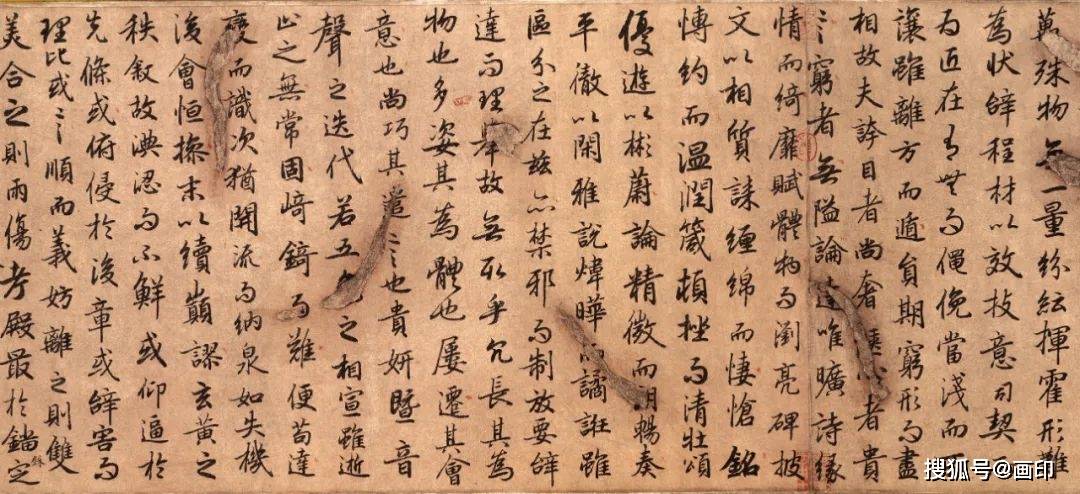 萬殊物無一量紛紜揮霍形難
為状辞程材以效技意司契
為匠在有無而僶俛當淺而
讓雖離方而遁員期窮形而盡
相故夫誇目者尚奢者貴
〻窮者無隘論達唯曠詩緣
情而綺靡賦體物而瀏亮碑披
文以相質誄纏綿而悽愴銘
博約而温潤箴頓挫而清壯頌
優遊以彬蔚論精微而朗暢奏
平徹以閑雅說煒曄而譎誑雖
區分之在茲亦禁邪而制放要辞
達而理舉故無取乎冗長其為
物也多姿其為體也屢遷其會
意也尚巧其遣〻也貴妍暨音
聲之迭代若五色之相宣雖逝
止之無常固崎錡而難便苟達
變而識次猶開流而納泉如失機
後會恒操末以續巔謬玄黃之
秩叙故淟涊而不鮮或仰逼於
先條或俯侵於後章或辞害而
理比或〻順而義妨離之則雙
美合之則兩傷考殿最於錙銖定
搜狐号@画印